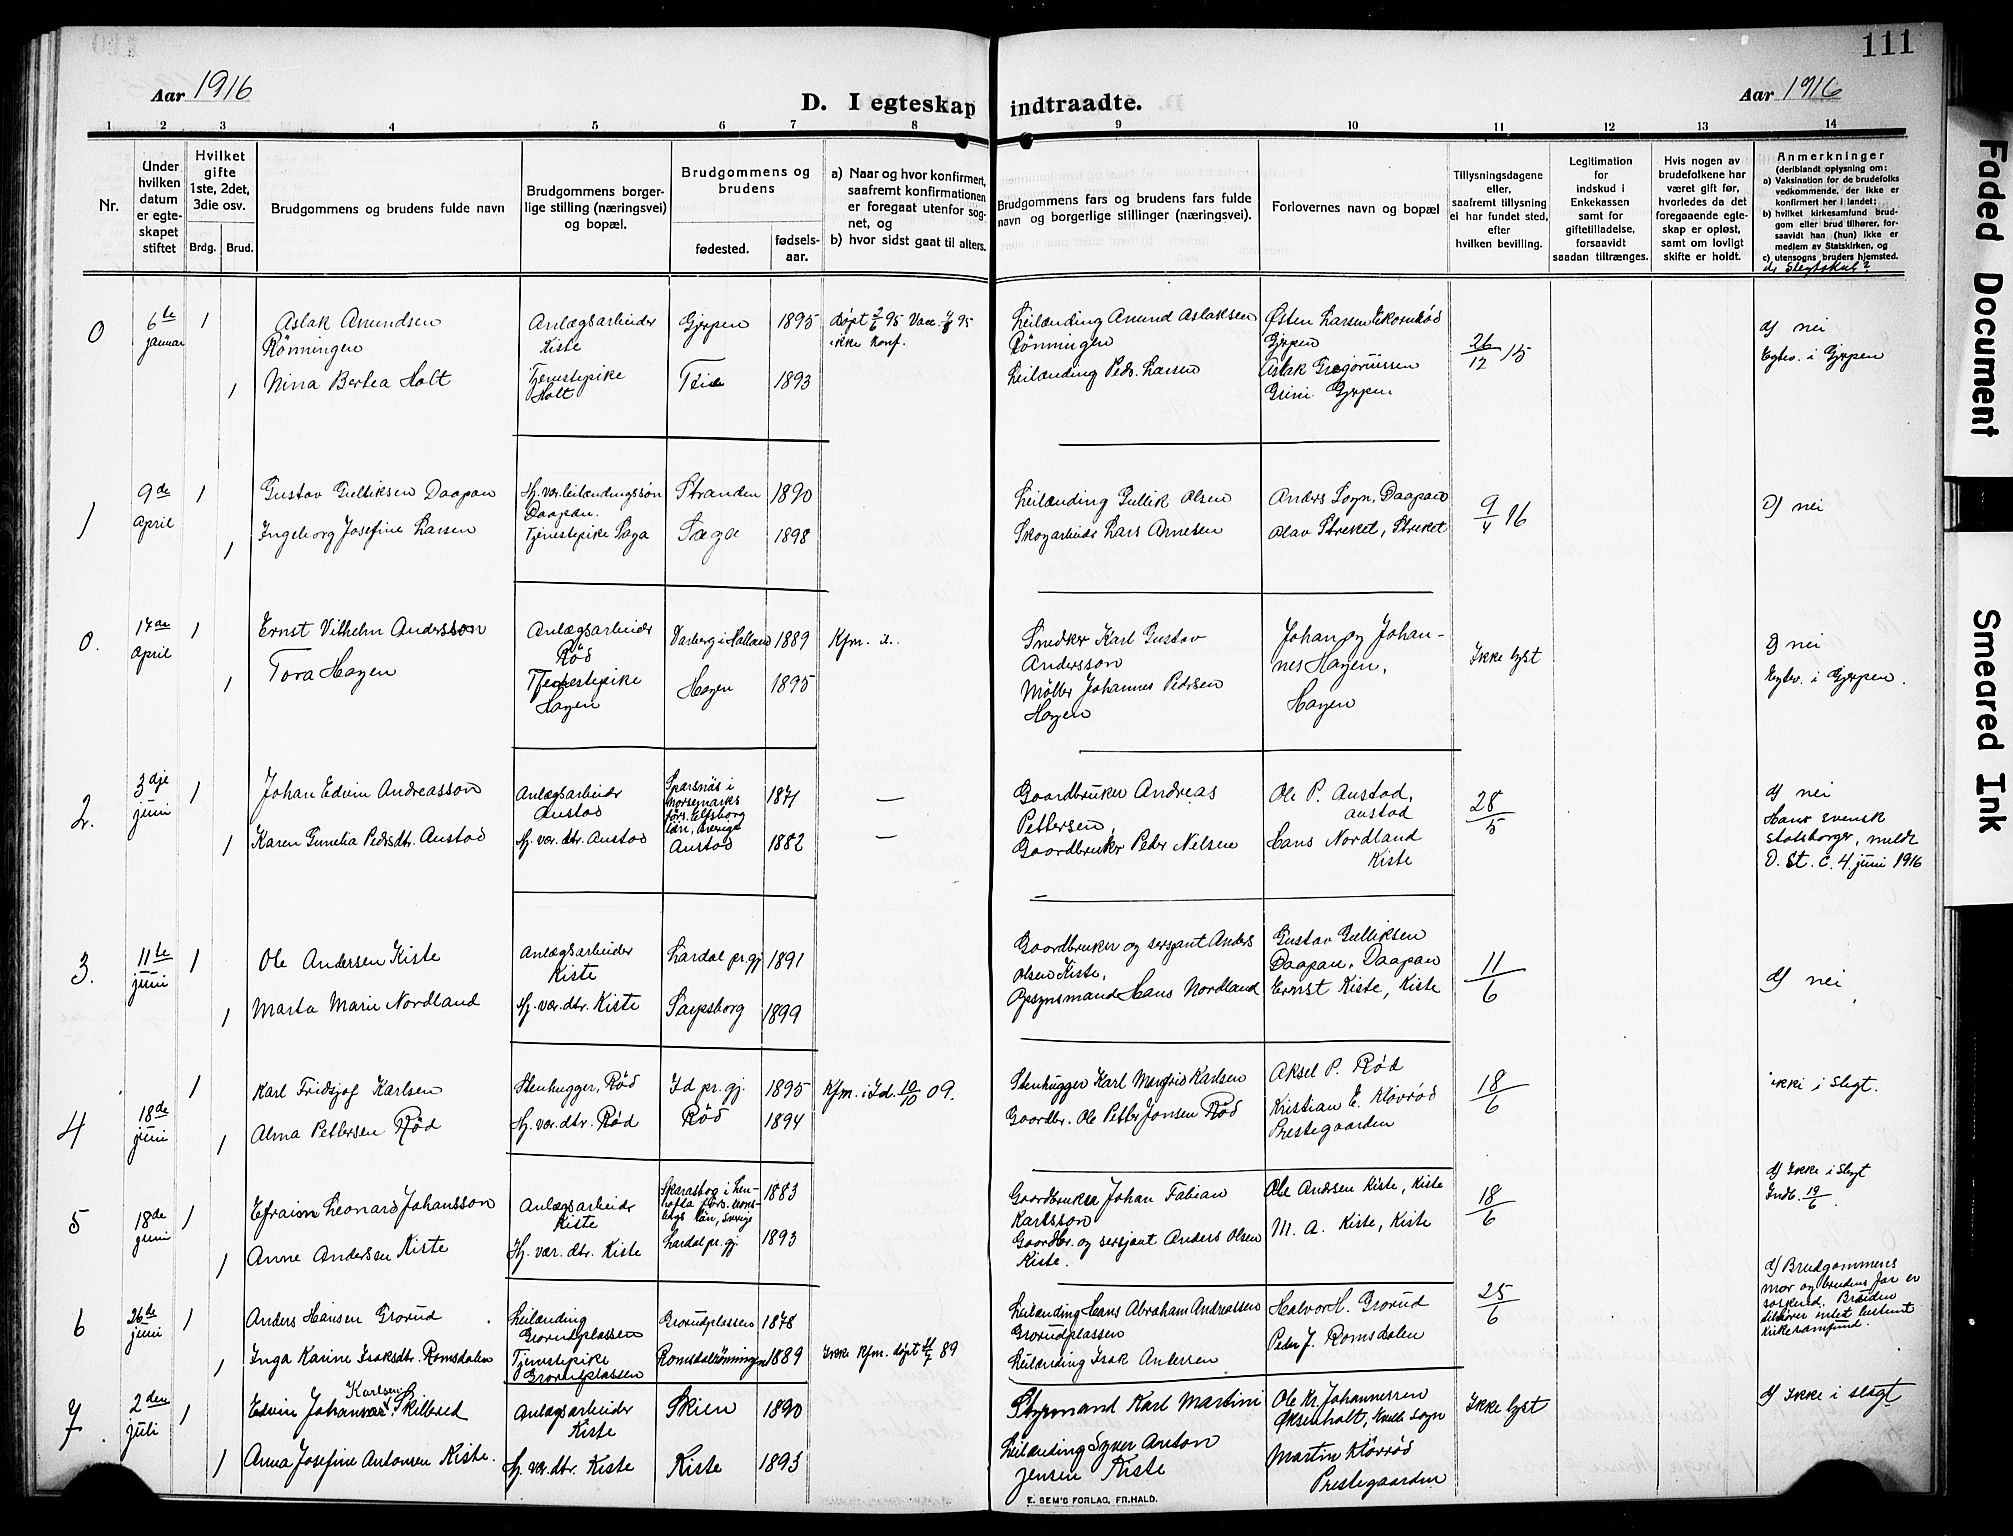 111
Aar 1916
D. I egteskap indtraadte.
Aar 1916
1 2 3 4 5 6 7 8 9 10 11 12 13 14
Nr.
Under hvilken datum er egte-skapet stiftet
Hvilket gifte 1ste, 2det, 3die osv.
Brdg. Brud.
Brudgommens og brudens fulde navn
Brudgommens borger-lige stilling (næringsvei) og bopæl.
Brudgommens og brudens
fødested. fødsels-aar.
a) Naar og hvor konfirmert, saafremt konfirmationen er foregaat utenfor sog-net, og
b) hvor sidst gaat til alters.
Brudgommens fars og brudens fars fulde navn og borgerlige stillinger (næringsvei).
Forlovernes navn og bopæl
Tillysningsdagene eller, saafremt tillysning ei har fundet sted, efter hvilken bevilling.
Legitimation for indskud i Enkekassen samt for giftetilladelse, forsaavidt saadan tiltrænges.
Hvis nogen av brudefolkene har været gift før, hvorledes da det foregaaende egte-skap er opløst, samt om lovligt skifte er holdt.
Anmerkninger (deriblandt oplysning om:
a) Vaksination for de brudefolks vedkommende, der ikke er konfirmert her i landet;
b) hvilket kirkesamfund brud-gom eller brud tilhører, for-saavidt han (hun) ikke er medlem av Statskirken, og
c) utensogns bruders hjemsted.
d. Slegtskab?
0 6te januar 1 Aslak Amundsen Rönningen Anlægsarbeider Kiste Gjerpen 1895 Døpt 2/6 95 Vacc. 95 ikke konf.
Leilænding Amund Aslaksen Rönningen Østen Larsen Ekornrød Gjerpen 26/12 15 d) nei
1 Nina Bertea Holt Tjenestepike Holt 1893
Leilænding Peds. Larsen Aslak Gregoriussen Grini Gjerpen Egtev. i Gjerpen
1 9de April 1 Gustav Gulliksen Daapan Hj. vær. leilændingssøn Daapan. Stranden 1890
Leilænding Gullik Olsen Anders Sogn, Daapan 9/4 16 d) nei
1 Ingeborg Josefine Larsen Tjenestepike Saga Saga 1898
Skogarbeider Lars Arnesen Olav Streket, Streket
0. 17de April 1 Ernst Vilhelm Andersson Anlægsarbeider Rød Varberg i Halland 1889 Kfm.
Snedker Karl Gustav Andersson Johan og Johan-nes Hagen, Hagen Ikke lyst d) nei
1 Tora Hagen Tjenestepike Hagen Hagen 1895
Møller Johannes Pedersen Hagen Egtev. i Gjerpen.
2. 3dje juni 1 Johan Edvin Andreasson Anlægsarbeider Austad 1871 —
Gaardbruker Andreas Pettersen, Ole P. Austad, Austad 28/5 d) nei
1 Karen Gunelia Pedersdtr. Austad Hj. vær. dtr. Austad Austad 1882 —
Gaardbruker Peder Nilsen Hans Nordland Kiste Han svensk statsborger, meldt D. St. C. 4. juni 1916
3. 11te juni 1 Ole Andersen Kiste Anlægsarbeider Kiste Lardal pr.gj 1891
Gaardbruker og sersjant Anders Olsen Kiste, Gustav Gulliksen Daapan, Daapan 11/6 d) nei
1 Marta Marie Nordland Hj. vær. dtr. Kiste Sarpsborg 1899
Opsynsmand Hans Nordland Ernst Kiste, Kiste
4 18de juni 1 Karl Fridsjof Karlsen Stenhugger, Rød Id pr.gj. 1895 Kfm. i Id. 10/10 09.
Stenhugger Karl Manfrid Karlsen Aksel P. Rød 18/6 ikke i slegt.
1 Alma Pettersen Rød Hj. vær. dtr. Rød Rød 1894
Gaardbr. Ole Petter Jonsen Rød Kristian E. Kløvrød Prestegaarden
5 18de juni 1 Efraim Leonard Johansson Anlægsarbeider Kiste 1883
Gaardbruker Johan Fabian Karlsson Ole Andersen Kiste, Kiste 18/6 d) Ikke i slegt Indb. 19/6.
1 Anne Andersen Kiste Hj. vær. dtr. Kiste Lardal pr.gj. 1893
Gaardbr. og sersjant Anders Olsen Kiste. M. A. Kiste, Kiste
6 26de juni 1 Anders Hansen Grorud Leilænding Grorudplassen Grorudplassen 1878
Leilænding Hans Abraham Andreassen Grorudplassen Halvor H. Grorud 25/6 d) Brudgommens mor og brudens far er søsken. Bruden tilhører intet bestemt kirkesamfund.
1 Inga Karine Isaksdtr. Romsdalen Tjenestepike Grorudplassen Romsdalrønningen 1889 Ikke kfm. døpt 89
Leilænding Isak Andersen Peder J. Romsdalen
7. 2den juli 1 Edvin Johannes Karlsen Skilbred Anlægsarbeider Kiste Skien 1890
Styrmand Karl Martini Ole Kr. Johannessen Øksenholt, sogn Ikke lyst d) Ikke i slegt
1 Anna Josefine Antonsen Kiste. Hj. vær. dtr. Kiste Kiste 1893
Leilænding Syver Anton Jensen Kiste Martin Kløvrød Prestegaarden
E. SEM'S FORLAG, FR.HALD.
Faded Document
Smeared Ink